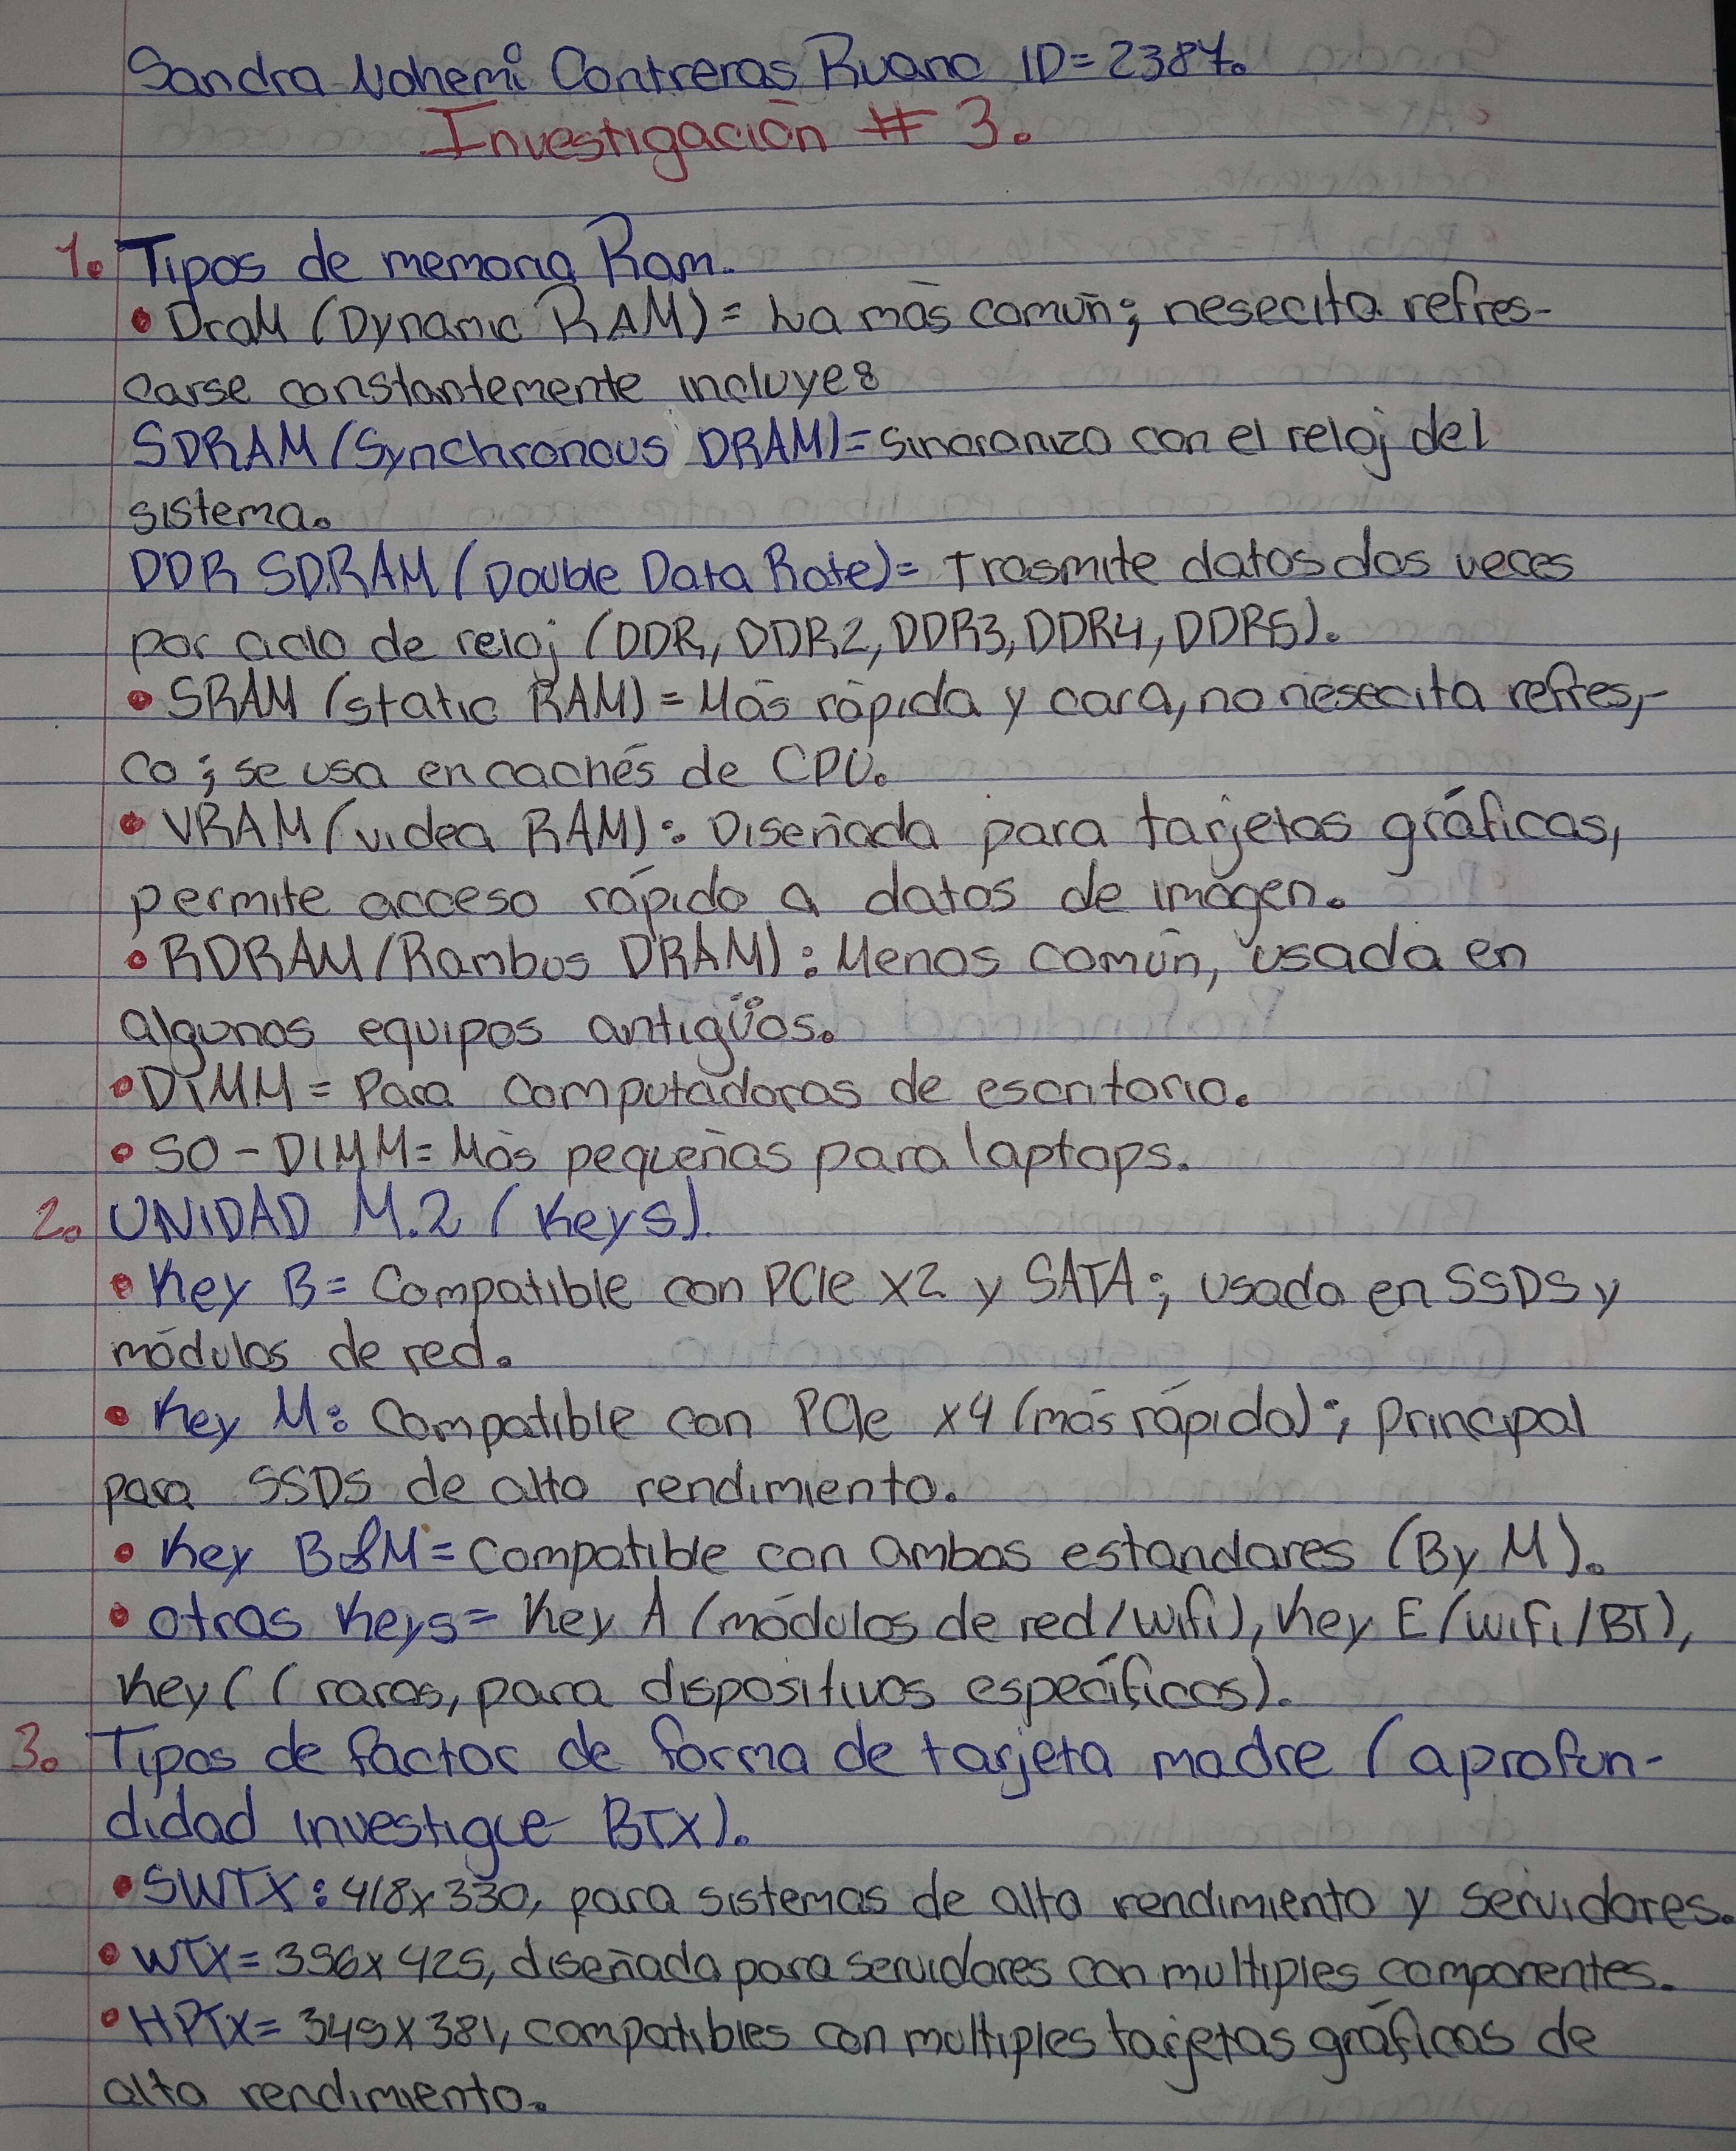 Sandra Nohemi Contreras Ruano ID=2387.
Investigación # 3.
1. Tipos de memoria Ram.
• DraM (Dynamic RAM) = La más común; nesecita refres-
carse constantemente incluye:
SDRAM (Synchronous DRAM) = Sincroniza con el reloj del
sistema.
DDR SDRAM (Double Data Rate) = Trasmite datos dos veces
por ciclo de reloj (DDR, DDR2, DDR3, DDR4, DDR5).
• SRAM (static RAM) = Más rápida y cara, no nesecita refres,-
co; se usa en cachés de CPU.
• VRAM (videa RAM): Diseñada para tarjetas gráficas,
permite acceso rápido a datos de imágen.
• RDRAM (Rambus DRAM): Menos común, usada en
algunos equipos antigüos.
• DIMM = Para computadoras de escritorio.
• SO-DIMM = Más pequeñas para laptops.
2. UNIDAD M.2 (Keys).
• Key B = Compatible con PCIe X2 y SATA; usada en SSDS y
módulos de red.
• Key M: Compatible con PCIe x4 (más rápida); principal
para SSDS de alto rendimiento.
• Key B&M = Compatible con ambos estandares (B y M).
• otras Keys = Key A (módulos de red/wifi), Key E (wifi/BT),
Key ( ( raros, para dispositivos específicos).
3. Tipos de factor de forma de tarjeta madre (aprofun-
didad investigue BTX).
• SWTX: 418x330, para sistemas de alto rendimiento y servidores.
• WTX = 356x425, diseñada para servidores con multiples componentes.
• HPTX = 349x381, compatibles con multiples tarjetas gráficas de
alto rendimiento.